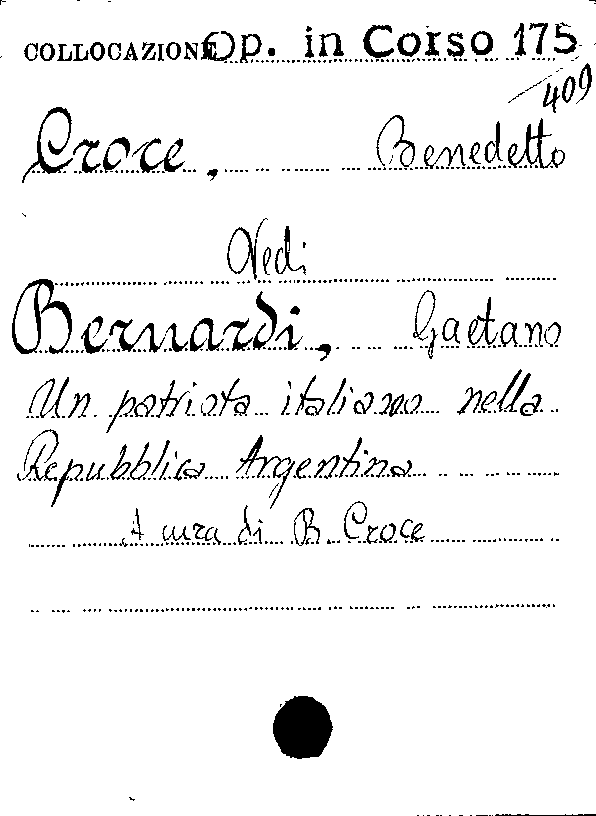 COLLOCAZIONE Op. in Corso 175
/409
Croce, Benedetto
Vedi
Bernardi, Gaetano
Un patriota italiano nella
Repubblica Argentina
A cura di B. Croce